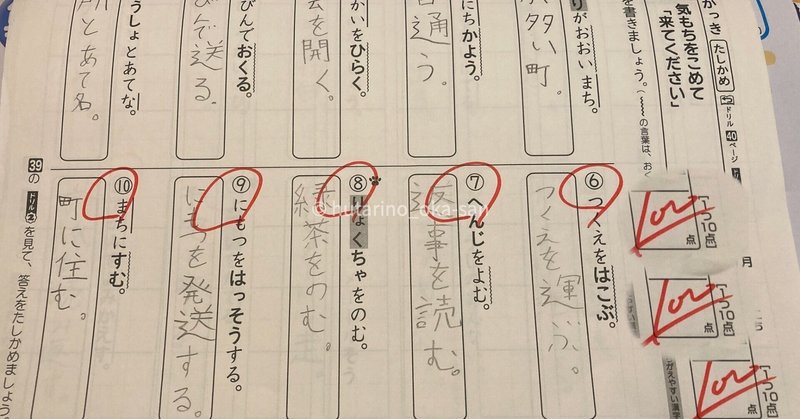 かっき たしかめ
ドリル 40 ページ
気もちをこめて
「来てください」
を書きましょう。(〰の言葉は、おく
[1つ10点]
100
点
[1つ10点]
100
点
[1つ10点]
100
がおおいまち。
多い町。
にちかよう。
通う。
かいをひらく。
を開く。
びんでおくる。
びんで送る。
うしょとあてな。
所とあて名。
⑥ つくえをはこぶ。
つくえを運ぶ。
⑦ んじをよむ。
返事を読む。
⑧ りょくちゃをのむ。
緑茶をのむ。
⑨ にもつをはっそうする。
にもつを発送する。
⑩ まちにすむ。
町に住む。
39の ドリル② を見て、答えをたしかめましょう
月
© hutarino_oka-san